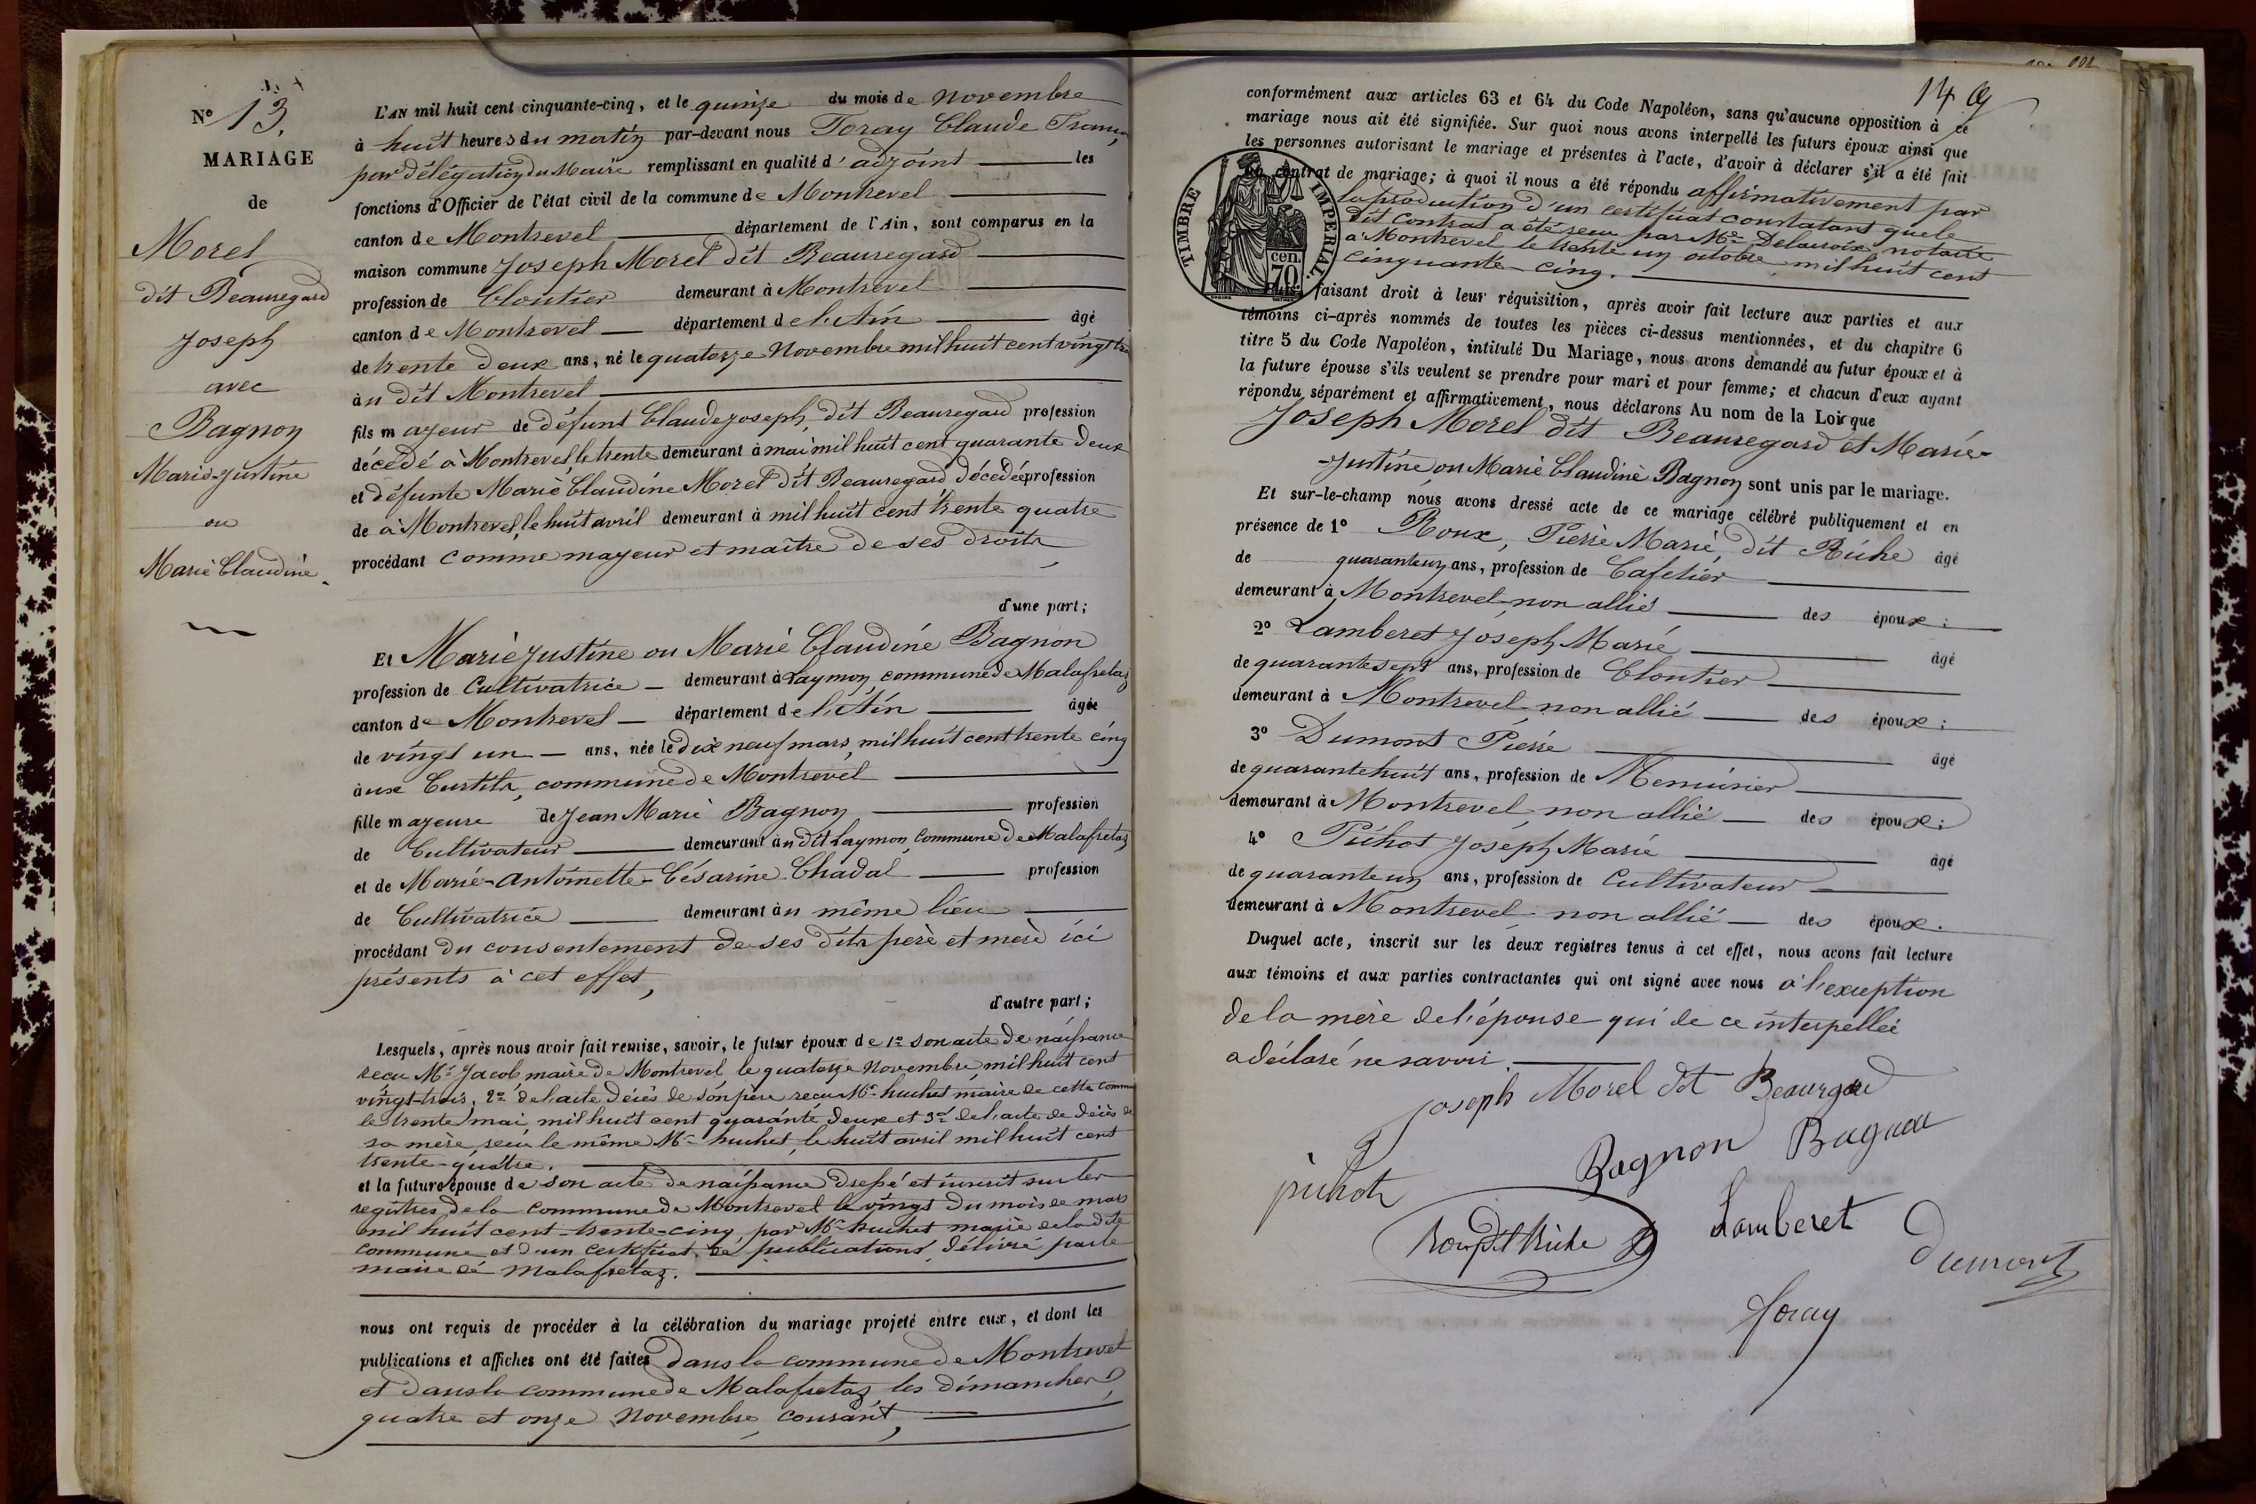 N° 13.
MARIAGE
de
Morel
dit Beauregard
Joseph
avec
Bagnon
Marie-Justine
ou
Marie Claudine
L'AN mil huit cent cinquante-cinq, et le quinze du mois de Novembre
à huit heures du matin par-devant nous Foray Claude
par délégation du Maire remplissant en qualité d'adjoint les
fonctions d'Officier de l'état civil de la commune de Montrevel
canton de Montrevel département de l'Ain, sont comparus en la
maison commune Joseph Morel dit Beauregard
profession de Cloutier demeurant à Montrevel
canton de Montrevel département de l'Ain âgé
de trente deux ans, né le quatorze Novembre mil huit cent vingt trois
à u dit Montrevel
fils majeur de défunt Claude joseph, dit Beauregard profession
décédé à Montrevel, le trente demeurant à mai mil huit cent quarante deux
et défunte Marie Claudine Morel dit Beauregard, décédée profession
de à Montrevel, le huit avril demeurant à mil huit cent trente quatre
procédant comme majeur et maître de ses droits
d'une part;
Et Marie justine ou Marie Claudine Bagnon
profession de Cultivatrice demeurant à Laymon, commune de Malafretaz
canton de Montrevel département de l'Ain âgée
de vingt un ans, née le dix neuf mars, mil huit cent trente cinq
à ux Curtits, commune de Montrevel
fille majeure de Jean Marie Bagnon profession
de Cultivateur demeurant à u dit Laymon, Commune de Malafretaz
et de Marie-Antoinette-Césarine Chadal profession
de Cultivatrice demeurant à u même lieu
procédant du consentement de ses dits père et mère ici
présents à cet effet,
d'autre part;
Lesquels, après nous avoir fait remise, savoir, le futur époux de 1° son acte de naissance
recu Mr Jacob maire de Montrevel le quatorze Novembre mil huit cent
vingt-trois, 2° de l'acte décès de son père recu Mr huchet maire de cette commune
le trente mai mil huit cent quarante deux et 3° de l'acte de décès de
sa mère, recu le même Mr huchet, le huit avril mil huit cent
trente-quatre.
et la future épouse de son acte de naissance dressé et inscrit sur les
registres de la commune de Montrevel le vingt du mois de mars
mil huit cent trente-cinq, par Mr huchet maire de la dite
commune et d'un certificat de publications, délivré par le
maire de Malafretaz.
nous ont requis de procéder à la célébration du mariage projeté entre eux, et dont les
publications et affiches ont été faites dans la commune de Montrevel
et dans la commune de Malafretaz les dimanches
quatre et onze Novembre courant,
14
conformément aux articles 63 et 64 du Code Napoléon, sans qu'aucune opposition à ce
mariage nous ait été signifiée. Sur quoi nous avons interpellé les futurs époux ainsi que
les personnes autorisant le mariage et présentes à l'acte, d'avoir à déclarer s'il a été fait
un contrat de mariage; à quoi il nous a été répondu affirmativement par
la production d'un certificat constatant que le
dit Contrat a été recu par Me Delacroix notaire
à Montrevel le trente un octobre mil huit cent
cinquante-cinq.
TIMBRE IMPERIAL
70 cen.
Puis, faisant droit à leur réquisition, après avoir fait lecture aux parties et aux
témoins ci-après nommés de toutes les pièces ci-dessus mentionnées, et du chapitre 6
titre 5 du Code Napoléon, intitulé Du Mariage, nous avons demandé au futur époux et à
la future épouse s'ils veulent se prendre pour mari et pour femme; et chacun d'eux ayant
répondu séparément et affirmativement, nous déclarons Au nom de la Loi que
Joseph Morel dit Beauregard et Marie-
-Justine ou Marie Claudine Bagnon sont unis par le mariage.
Et sur-le-champ nous avons dressé acte de ce mariage célébré publiquement et en
présence de 1° Roux, Pierre Marie, dit Riche âgé
de quarante un ans, profession de Cafetier
demeurant à Montrevel non allié des époux;
2° Lamberet Joseph Marie âgé
de quarante sept ans, profession de Cloutier
demeurant à Montrevel non allié des époux;
3° Dumont Pierre âgé
de quarante huit ans, profession de Menuisier
demeurant à Montrevel non allié des époux;
4° Pichot Joseph Marie âgé
de quarante un ans, profession de Cultivateur
demeurant à Montrevel non allié des époux.
Duquel acte, inscrit sur les deux registres tenus à cet effet, nous avons fait lecture
aux témoins et aux parties contractantes qui ont signé avec nous à l'exception
de la mère de l'épouse qui de ce interpellée
a déclaré ne savoir.
joseph Morel dit Beaurgard
Bagnon Bagnon
pichot
Roux dit Riche
Lamberet
dumont
foray